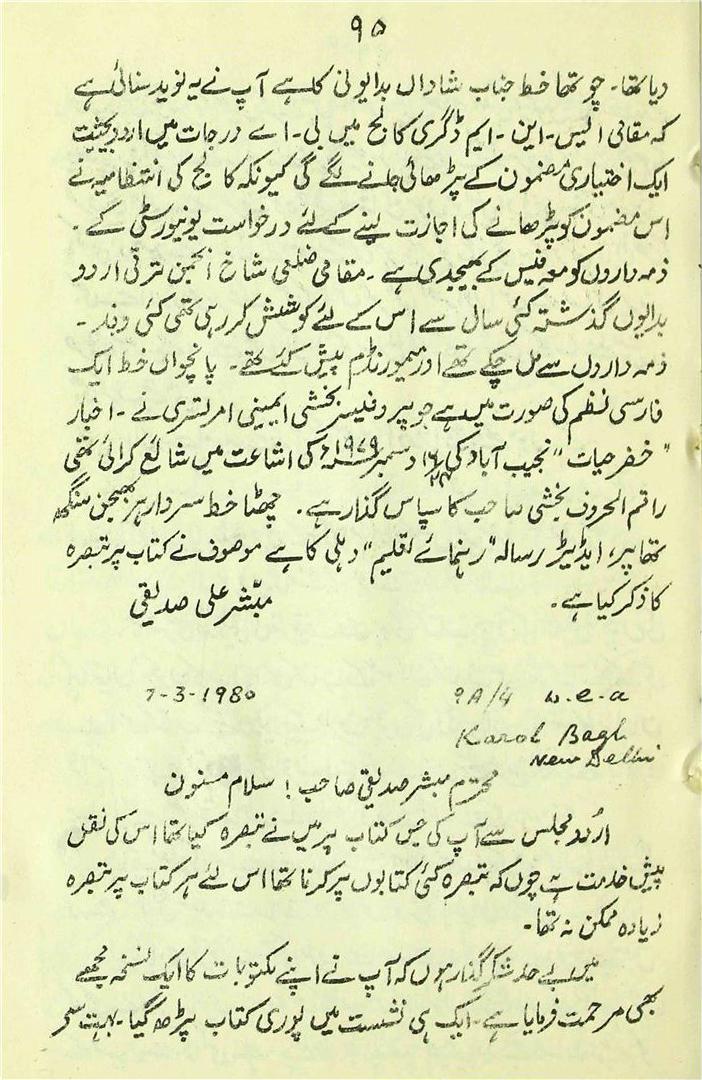 ۹۵
دیا تھا۔ چوتھا خط جناب شاداں بدایونی کا ہے آپ نے یہ نوید سنائی ہے
کہ مقامی ایس۔ این۔ ایم ڈگری کالج میں بی۔ اے درجات میں اردو بحیثیت
ایک اختیاری مضمون کے پڑھائی جانے لگے گی کیونکہ کالج کی انتظامیہ نے
اس مضمون کو پڑھانے کی اجازت لینے کے لئے درخواست یونیورسٹی کے۔
ذمہ داروں کو معہ فیس کے بھیجدی ہے۔ مقامی ضلعی شاخ انجمن ترقی اردو
بدایوں گذشتہ کئی سال سے اس کے لئے کوشش کر رہی تھی کئی وفد۔
ذمہ داروں سے مل چکے تھے اور میمورنڈم پیش کئے تھے۔ پانچواں خط ایک
فارسی نظم کی صورت میں ہے جو پروفیسر بخشی ایمینی امرتسری نے۔ اخبار
"خضر حیات" نجیب آباد کی دسمبر ۱۹۷۹ء کی اشاعت میں شائع کرائی تھی
راقم الحروف بخشی صاحب کا سپاس گذار ہے۔ چھٹا خط سردار ہربھجن سنگھ
تھاپر، ایڈیٹر رسالہ "رہنمائے تعلیم" دہلی کا ہے موصوف نے کتاب پر تبصرہ
کا ذکر کیا ہے۔ مبشر علی صدیقی
9A/4 W.E.A 7-3-1980
Karol Bagh
New Delhi
محترم مبشر صدیقی صاحب! سلام مسنون
اردو مجلس سے آپ کی جس کتاب پر میں نے تبصرہ کیا تھا اس کی نقل
پیش خدمت ہے چوں کہ تبصرہ کئی کتابوں پر کرنا تھا اس لئے ہر کتاب پر تبصرہ
زیادہ ممکن نہ تھا۔
میں بے حد شکر گذار ہوں کہ آپ نے اپنے مکتوبات کا ایک نسخہ مجھے
بھی مرحمت فرمایا ہے۔ ایک ہی نشست میں پوری کتاب پڑھ گیا۔ بہت سی